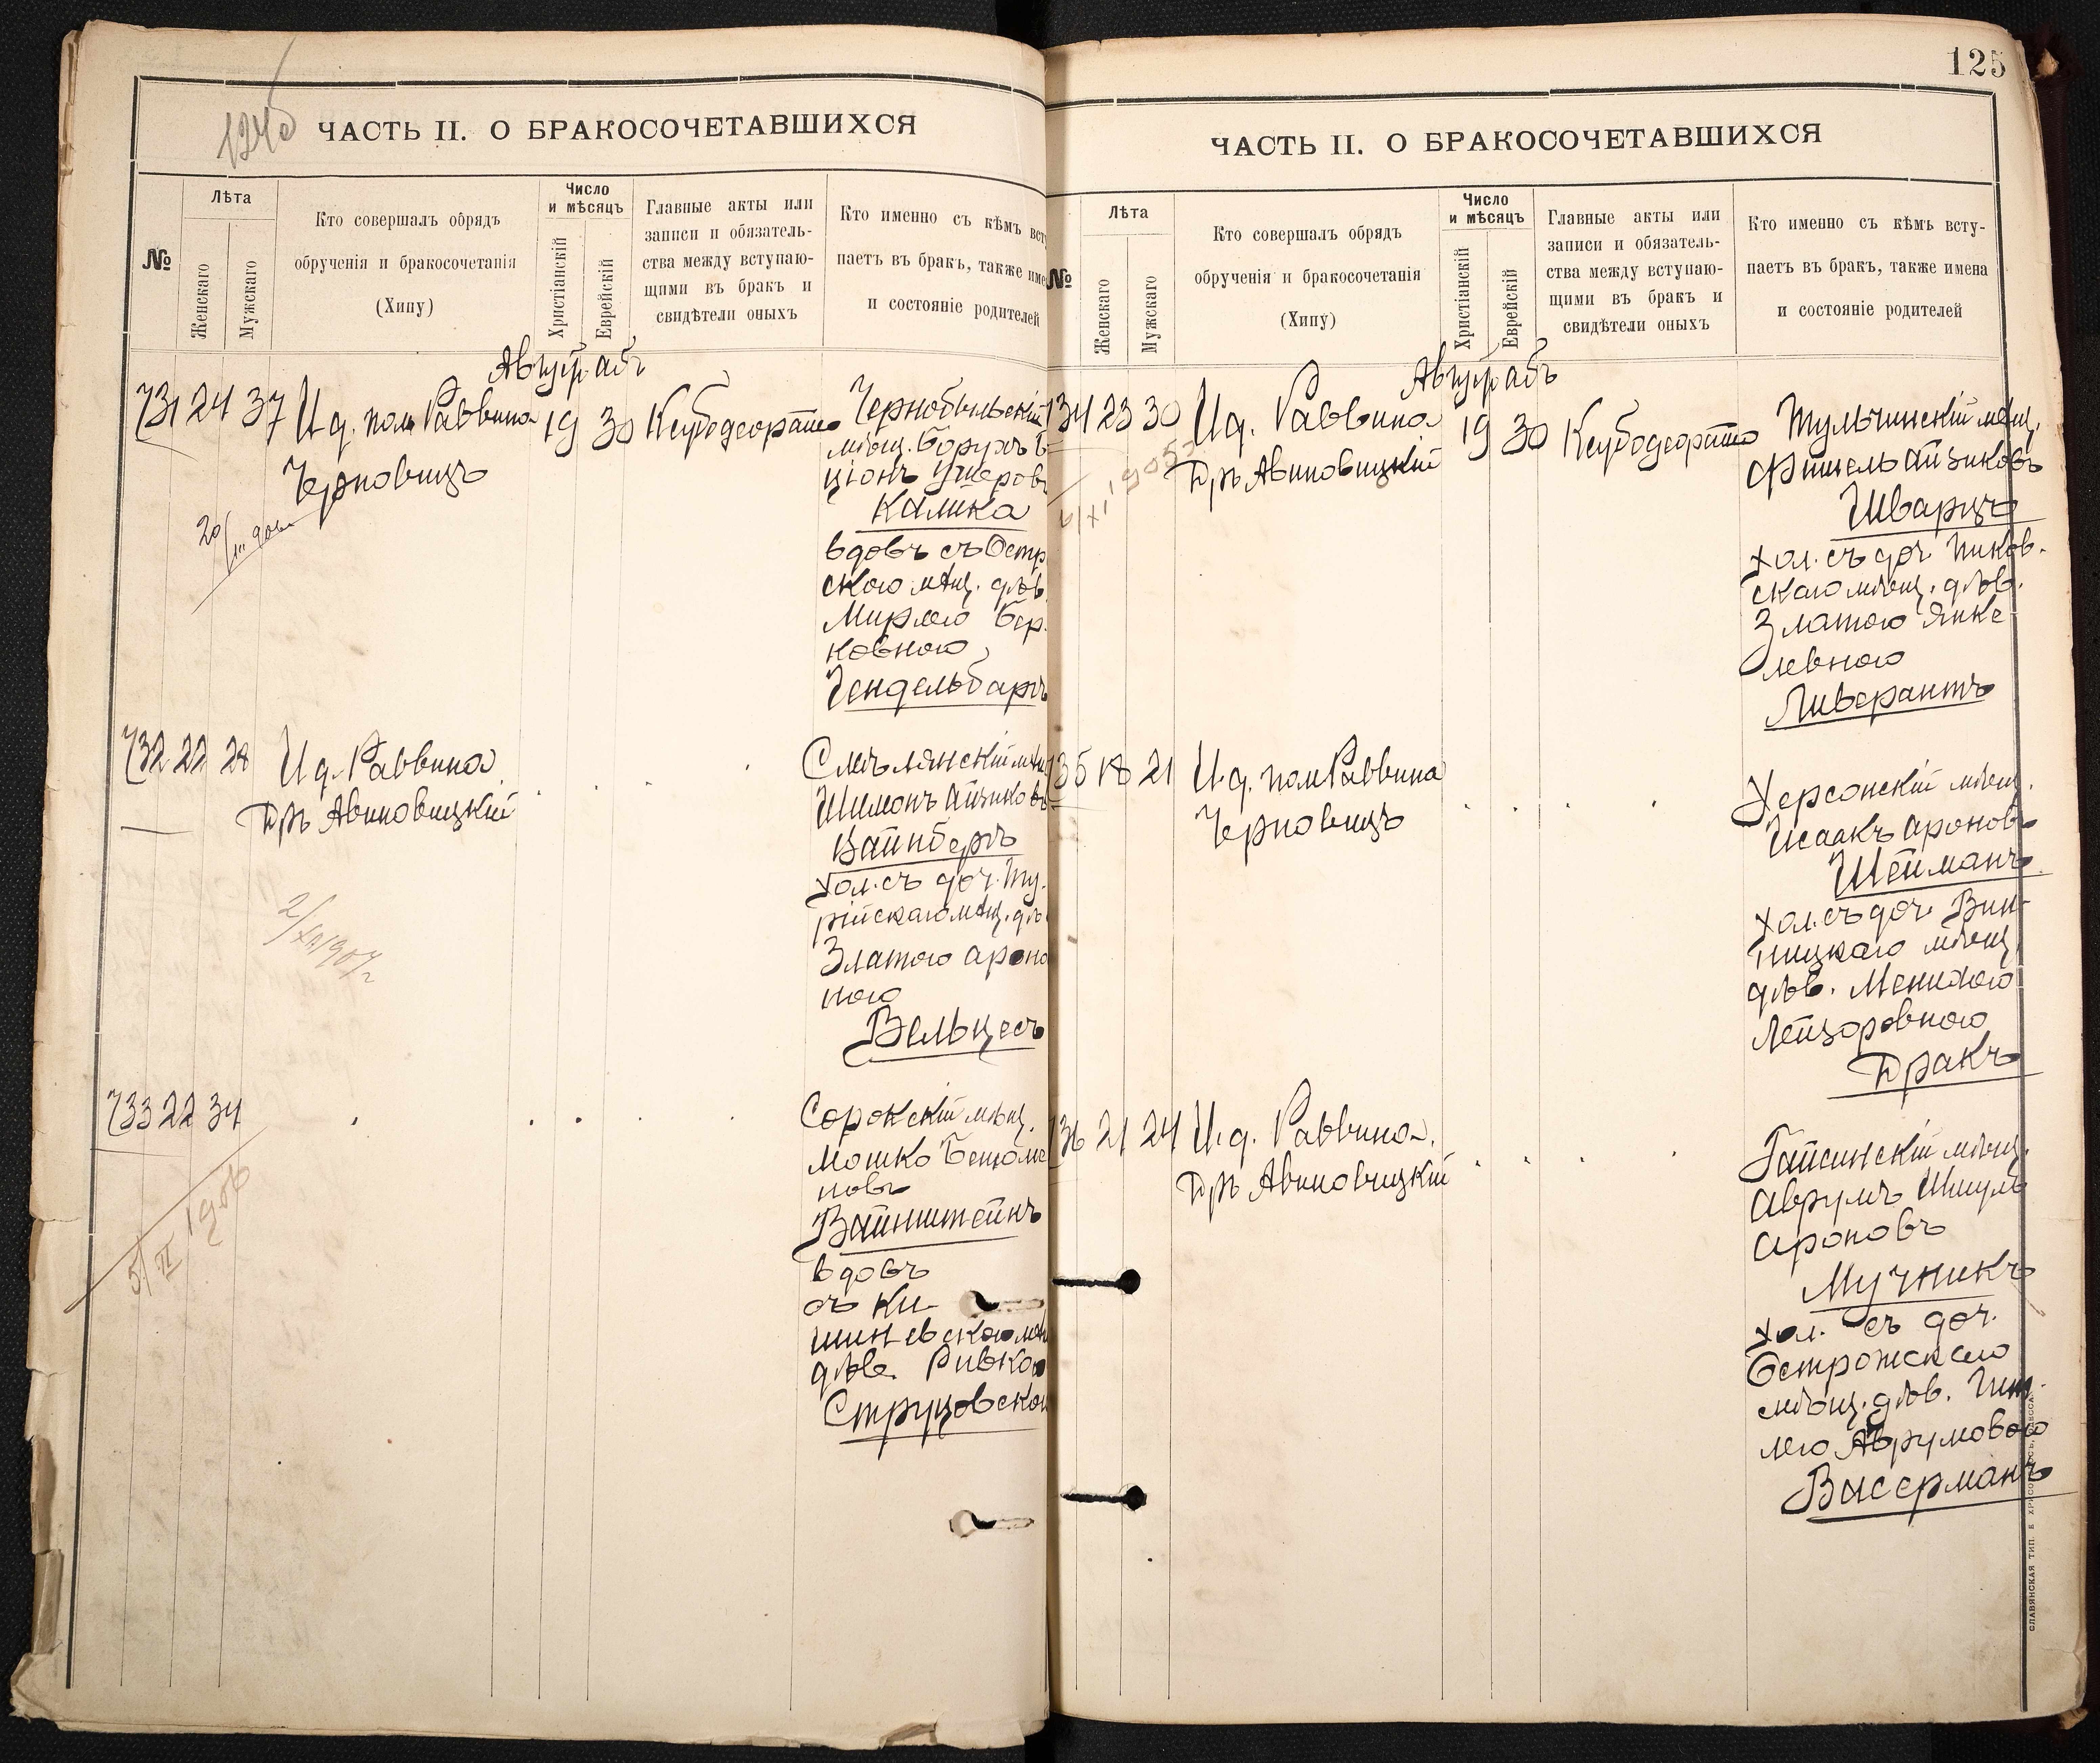 124б
ЧАСТЬ II. О БРАКОСОЧЕТАВШИХСЯ
№
Лѣта
Женскаго
Мужскаго
Кто совершалъ обрядъ
обрученія и бракосочетанія
(Хипу)
Число
и мѣсяцъ
Христіанскій
Еврейскій
Главные акты или
записи и обязатель-
ства между вступаю-
щими въ бракъ и
свидѣтели оныхъ
Кто именно съ кѣмъ всту
паетъ въ бракъ, также име
и состояніе родителей
Август абъ
731 24 37 И д. пом Раввина 19 30 Кеубодеорайто
Черновицъ
20/III 906
Чернобыльскій
мѣщ. Борухъ Б
ціонъ Ушеровъ
Калика
вдовъ съ Остр
ского мѣщ. дѣв.
Мирлею Бер-
ковною
Гендельбаргъ
732 22 28 И д. Раввина
Д-ръ Авиновицкій
2/XII 1907 г
Смѣлянскій мѣщ
Шимонъ Айзиковъ
Вайнбергъ
хол. съ доч. Ту-
рійскаго мѣщ. дѣ
Златою Ароно
ною
Вельцесъ
733 22 34
5/II 1906
Сорокскій мѣщ.
Мошко Бенюми
новъ
Вайнштейнъ
вдовъ
съ Ки-
шиневского мѣщ
дѣв. Ривкою
Струцовской
125
ЧАСТЬ II. О БРАКОСОЧЕТАВШИХСЯ
№
Лѣта
Женскаго
Мужскаго
Кто совершалъ обрядъ
обрученія и бракосочетанія
(Хипу)
Число
и мѣсяцъ
Христіанскій
Еврейскій
Главные акты или
записи и обязатель-
ства между вступаю-
щими въ бракъ и
свидѣтели оныхъ
Кто именно съ кѣмъ всту-
паетъ въ бракъ, также имена
и состояніе родителей
Август абъ
734 23 30 И д. Раввина 19 30 Кеубодеорайто
Д-ръ Авиновицкій
6/XI 905
Тульчинскій мѣщ.
Фишель Айзиковъ
Шварцъ
хол. съ доч. Пиков-
скаго мѣщ. дѣв.
Златою Янке-
левною
Ливерантъ
735 18 21 И д. пом Раввина
Черновицъ
Херсонскій мѣщ.
Исаакъ Ароновъ
Шейманъ
хол. съ доч. Вин-
ницкаго мѣщ
дѣв. Менихою
Лейзоровною
Дракъ
736 21 24 И д. Раввина.
Д-ръ Авиновицкій
Гайсинскій мѣщ.
Аврумъ Шмуль
Ароновъ
Мучникъ
хол. съ доч.
Острожскаго
мѣщ. дѣв. Гит-
лею Аврумовою
Васерманъ